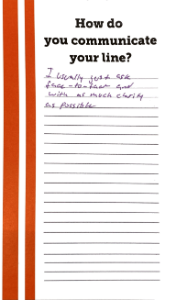 How do
you communicate
your line?
I usually just ask
face-to-face and
with as much clarity
as possible